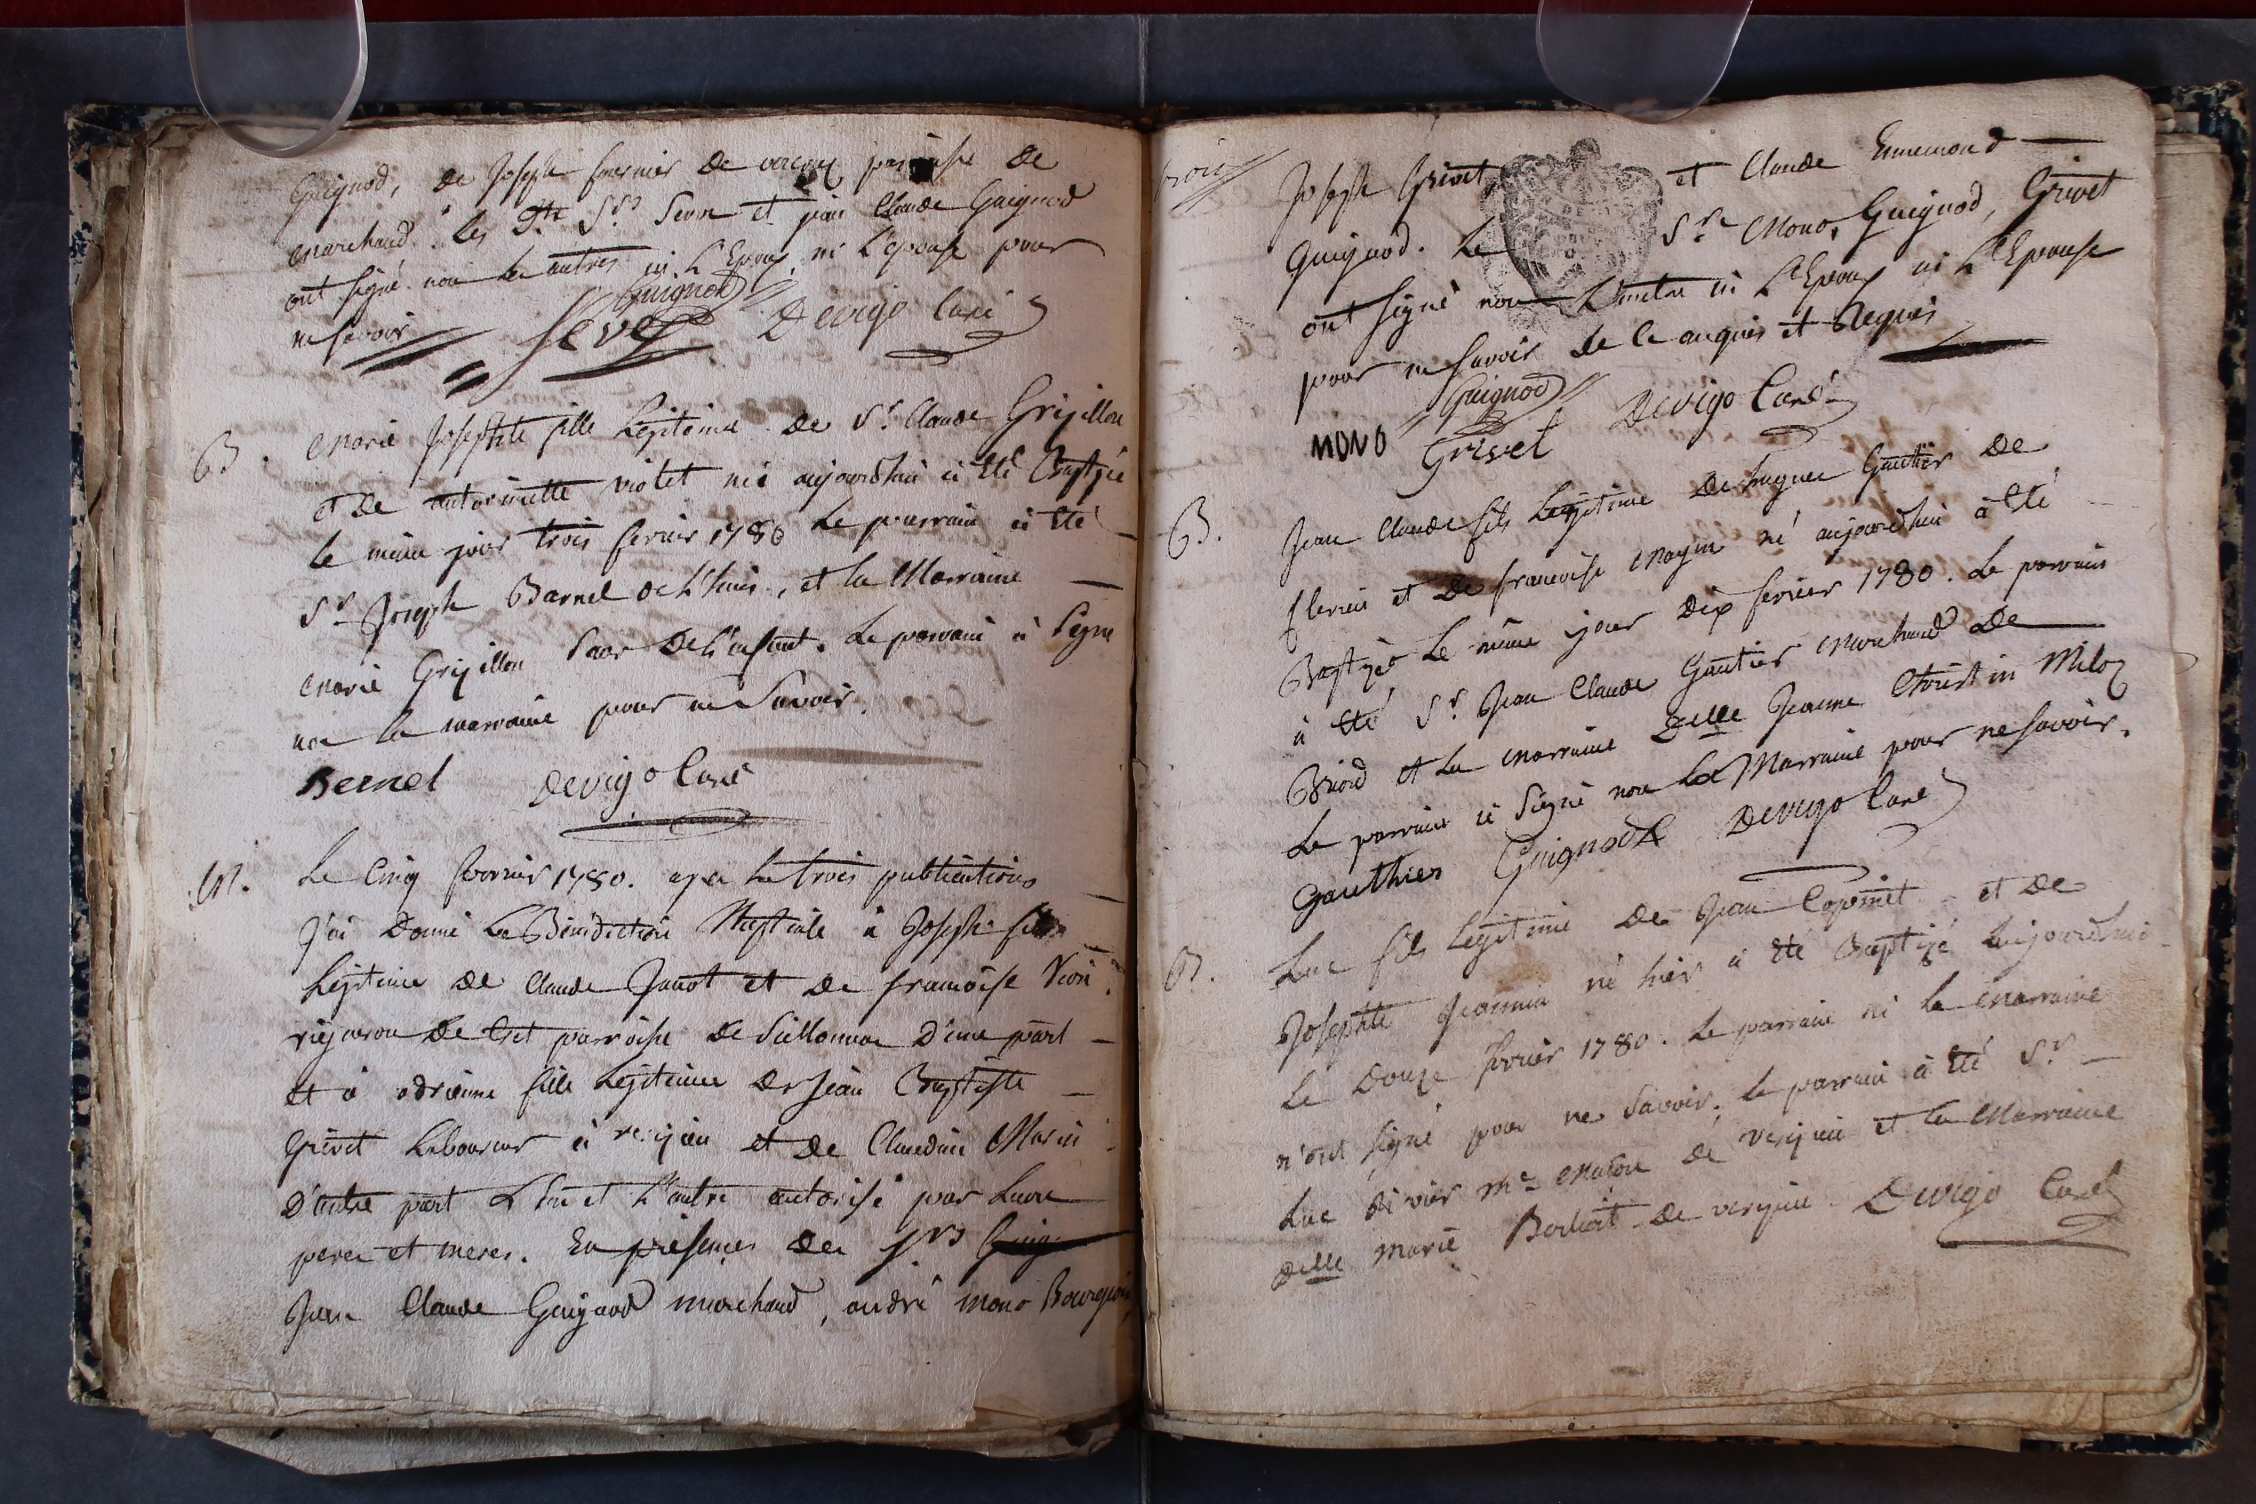 Guignod, de Joseph fournier de parroisse de
marchand. les dts Srs Seve et jean Claude Guignod
ont signé non les autres ni L'Epoux ni L'epouse pour
ne savoir
Guignod
Seve Devigo Curé
B. Marie Josephte fille Legitime de Sr Claude Grisillon
et de antoinette violet née aujourdhui à été Baptzée
le même jour trois fevrier 1780 Le parrain à été
Sr Joseph Barnel de L'huis, et la Marraine
Marie Grisillon Soeur de L'enfant. Le parrain à signé
non la marraine pour ne Savoir.
Bernel Devigo Curé
M. Le Cinq fevrier 1780. apres les trois publications
J'ai Donné La Bénédiction Nuptiale à Joseph fils
Legitime de Claude Janot et de francoise
de parroisse de D'une part
et à adrienne fille Legitime de Jean Baptiste
Grivet Laboureur à et de Claudine Marin
D'autre part L'un et L'autre autorisé par Leurs
peres et meres. En présences des Srs Guig
Jean Claude Guignod marchand, andré mono Bourgeois,
trois
Joseph Grivet et Claude Ennemond
Guignod. Le Sr Mono, Guignod, Grivet
ont signé non L'autre ni L'Epoux ni L'Epouse
pour ne savoir de ce enquis et Requis
Guignod
MONO Grivet Devigo Curé
B. Jean Claude fils Legitime de hugues Gautier de
flerieu et de francoise moyne né aujourdhui à été
Baptzé Le même jour Dix fevrier 1780. Le parrain
à été Sr Jean Claude Gautier marchand de
Briord et La marraine Delle Jeanne Christin Miloz
Le parrain à Signé non La Marraine pour ne savoir.
Gauthier Guignod Devigo Curé
B. Luc fils Legitime de Jean et de
Josephte Jeannin né hier à été Baptizé aujourdhui
Le Douze fevrier 1780. Le parrain ni la marraine
n'ont signé pour ne savoir. le parrain à été Sr
Luc Rivier me maçon de versieu et la Marraine
Delle Marie de versieu Devigo Curé